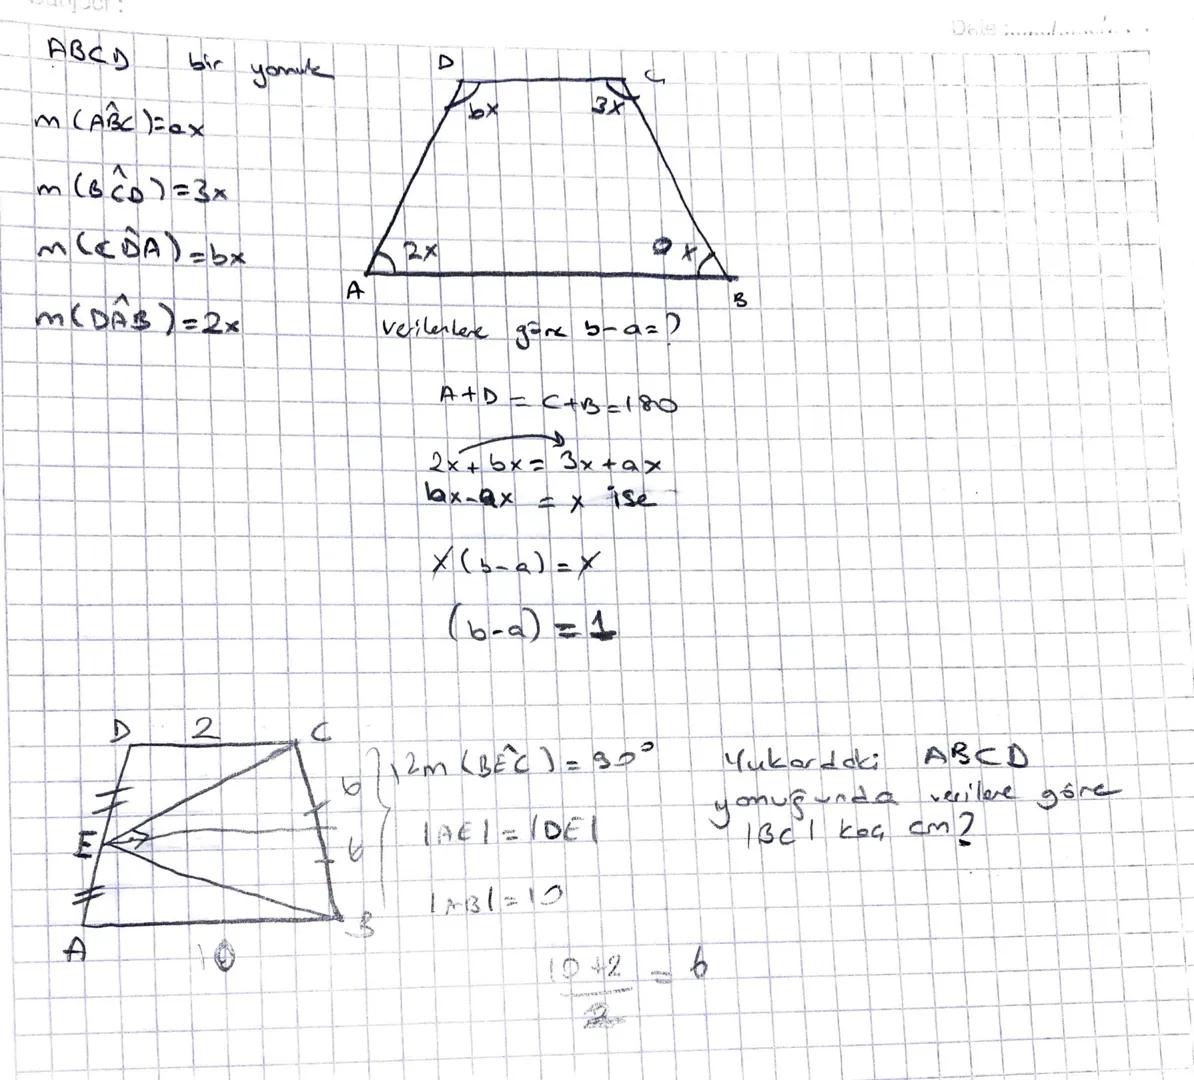 Date :
ABCD bir yamuk
m(AB̂C)=ax
m(BĈD)=3x
m(CD̂A)=bx
m(DÂB)=2x
D C
bx 3x
2x x
A B
verilenlere göre b-a=?
A+D = C+B=180
2x+bx= 3x+ax
bx-ax = x ise
x(b-a)=x
(b-a)=1
D 2 C
6
E
6
A 10 B
12
m(BÊC)=90°
|AE|=|DE|
|AB|=10
Yukardaki ABCD
yamuğunda verilere göre
|BC| kaç cm?
10+2
2
= 6